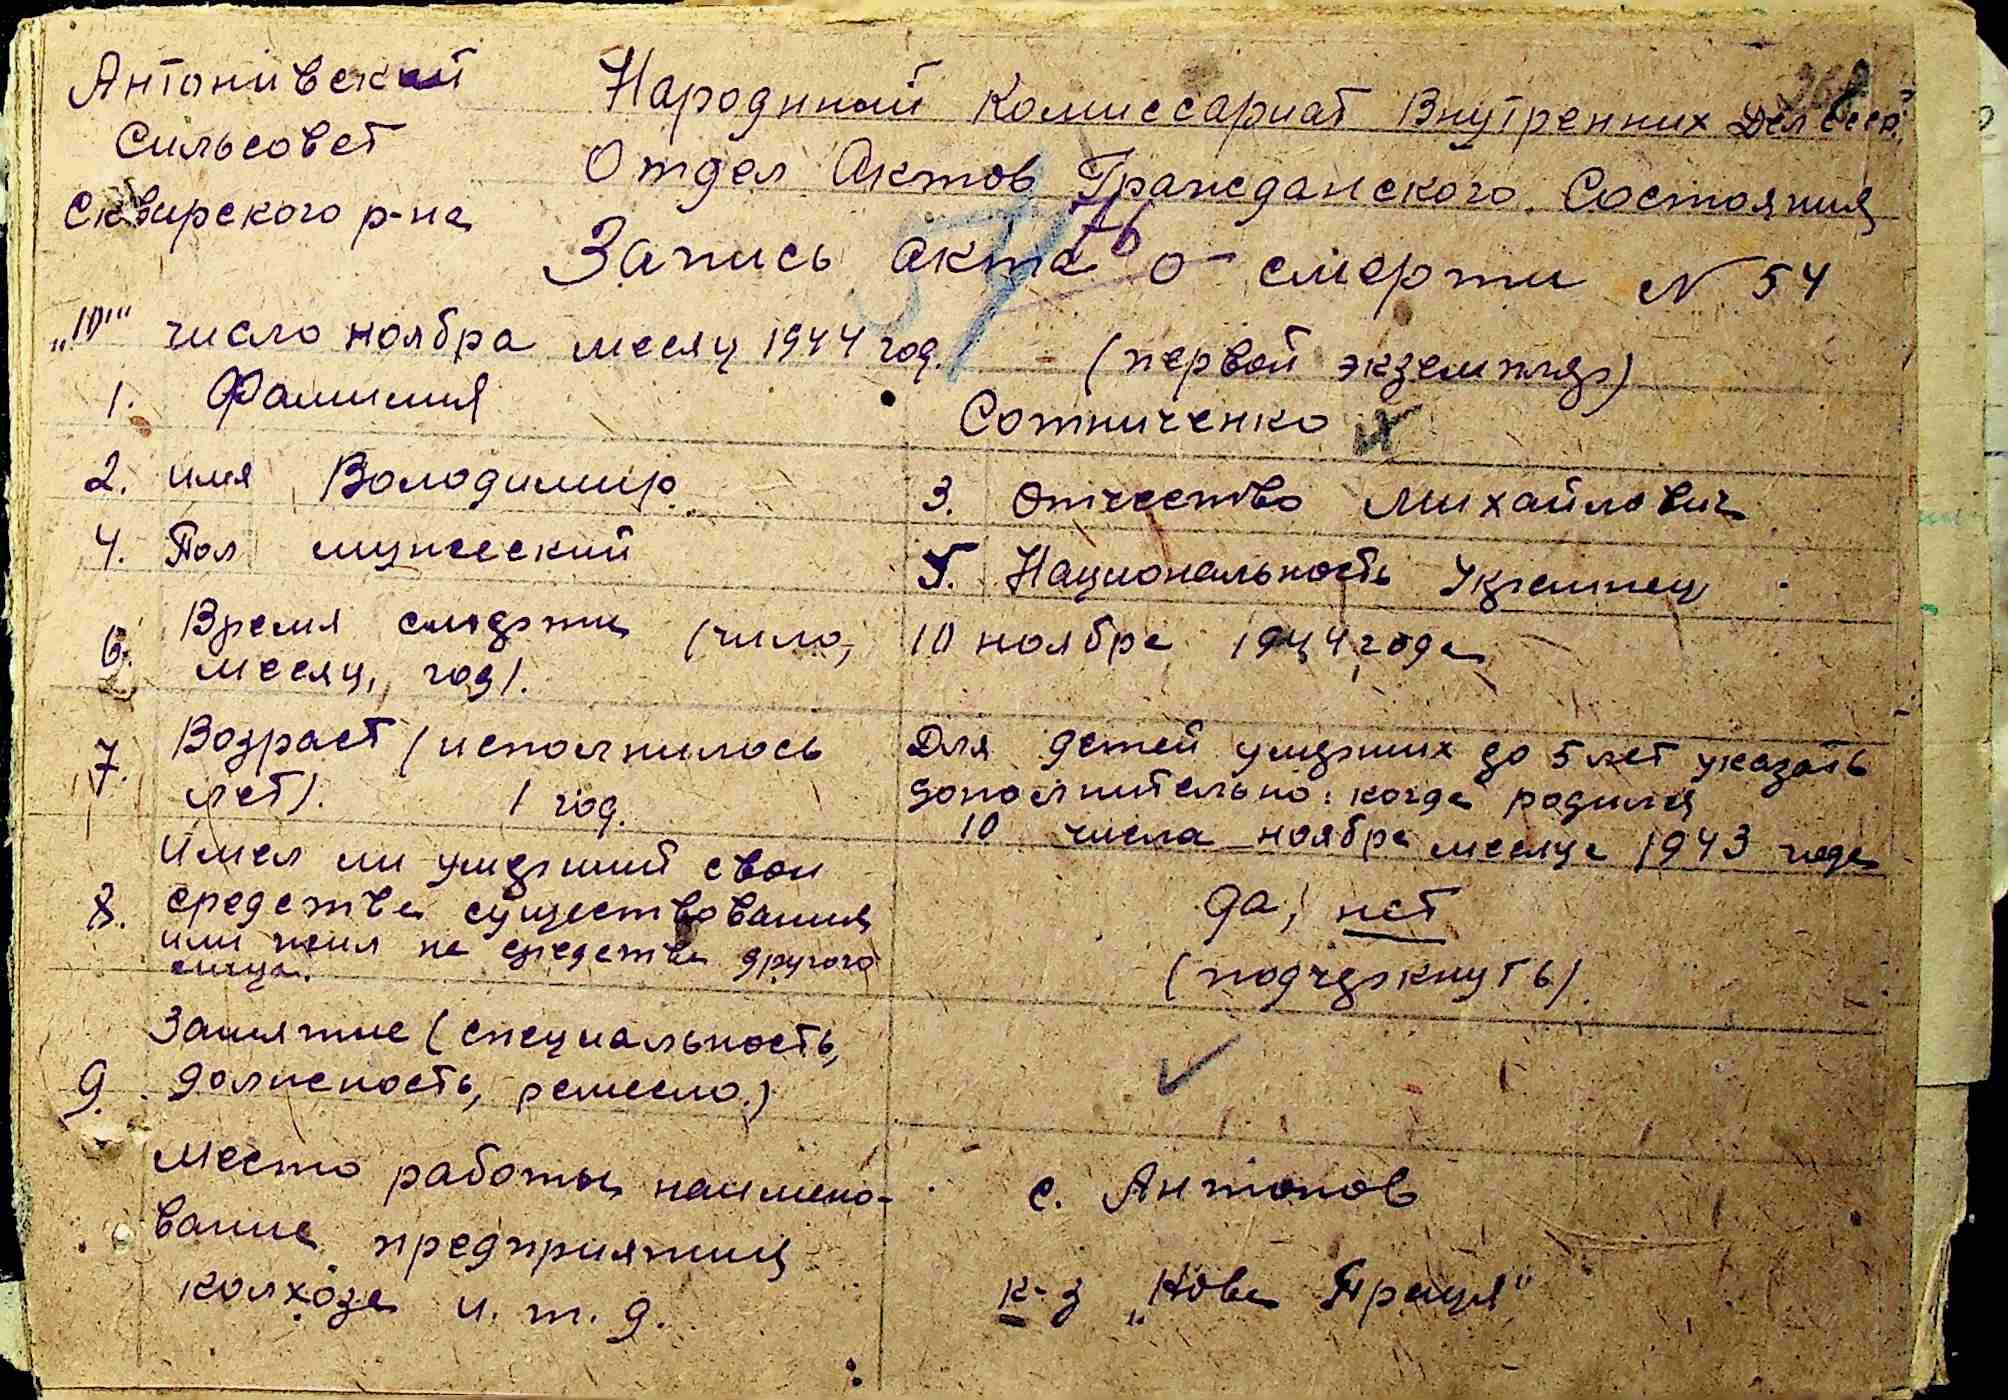 Антонивский
Сильсовет
Сквирского р-на
Народный Комиссариат Внутренних Дел СССР.
Отдел Актов Гражданского Состояния
Запись акта о смерти N 54
„10" число ноября месяц 1944 год.
(первой экземпляр)
1. Фамилия Сотниченко
2. имя Володимир
3. Отчество Михайлович
4. Пол мужеский
5. Национальность Украинец
6. Время смерти (число,
месяц, год).
10 ноября 1944 года
7. Возраст (исполнилось
лет). 1 год.
Для детей умерших до 5 лет указать
дополнительно: когда родился
10 числа ноября месяца 1943 года
Имел ли умерший свои
8. средства существования
или жил на средства другого
лица.
да, нет
(подчеркнуть)
Занятие (специальность,
9. должность, ремесло.)
Место работы, наимено-
вание предприятия
колхоза и. т. д.
с. Антонов
к-з „Нова Праця"